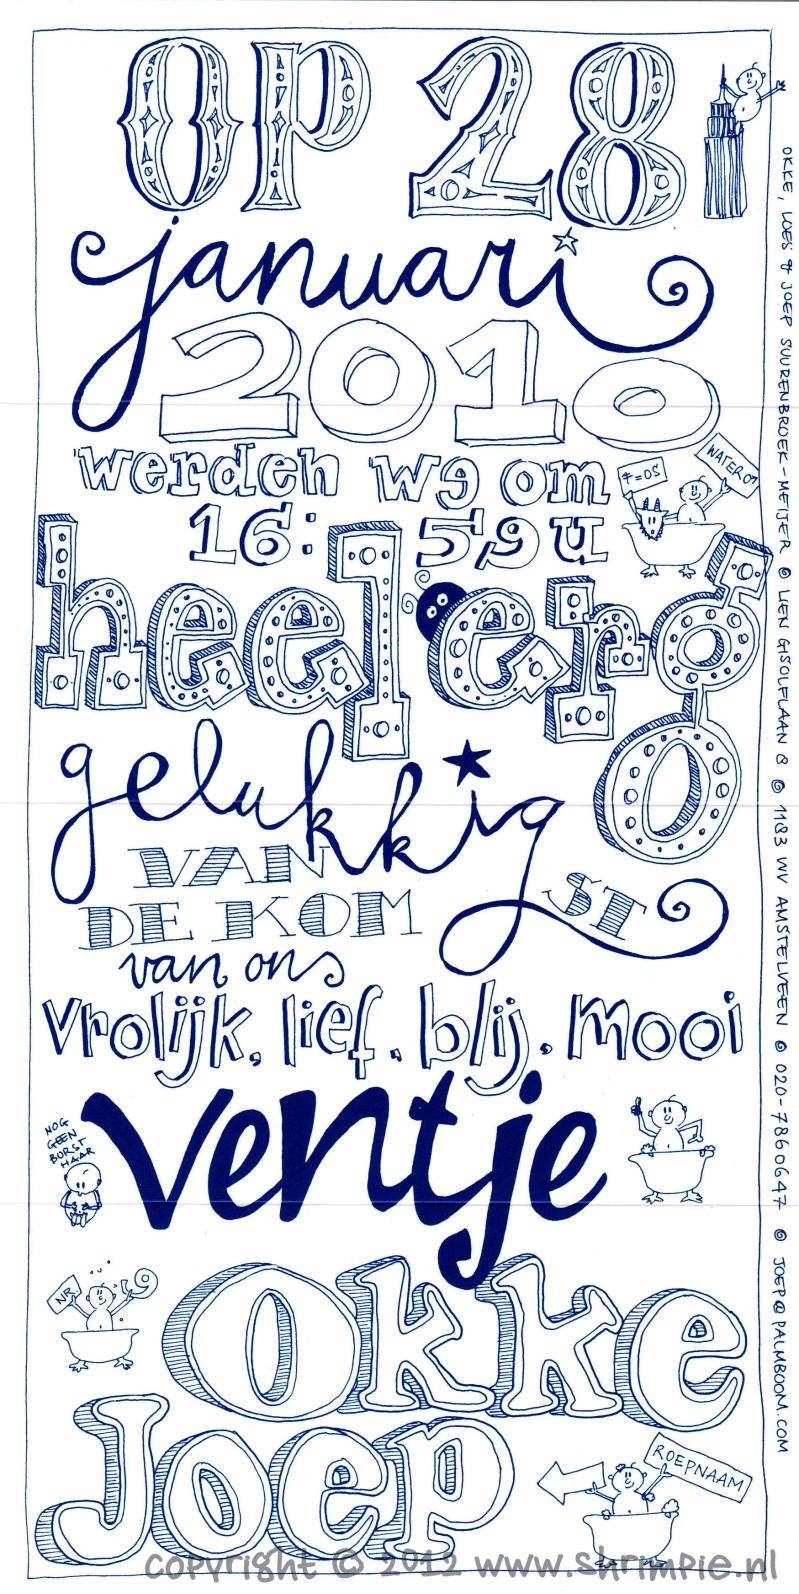 OP 28
januari
2010
werden we om
16:59u
heel erg
gelukkig
VAN
DE KOM ST
van ons
vrolijk, lief, blij, mooi
ventje
Okke
Joep
≠=OS
WATER
NOG
GEEN
BORST
HAAR
NR. 9
ROEPNAAM
OKKE, LOES & JOEP SUURENBROEK-MEIJER @ LEN GISOLFLAAN @ 1183 WV AMSTELVEEN @ 020-7860647 @ JOEP@PALMBOOM.COM
copyright © 2012 www.shrimpie.nl